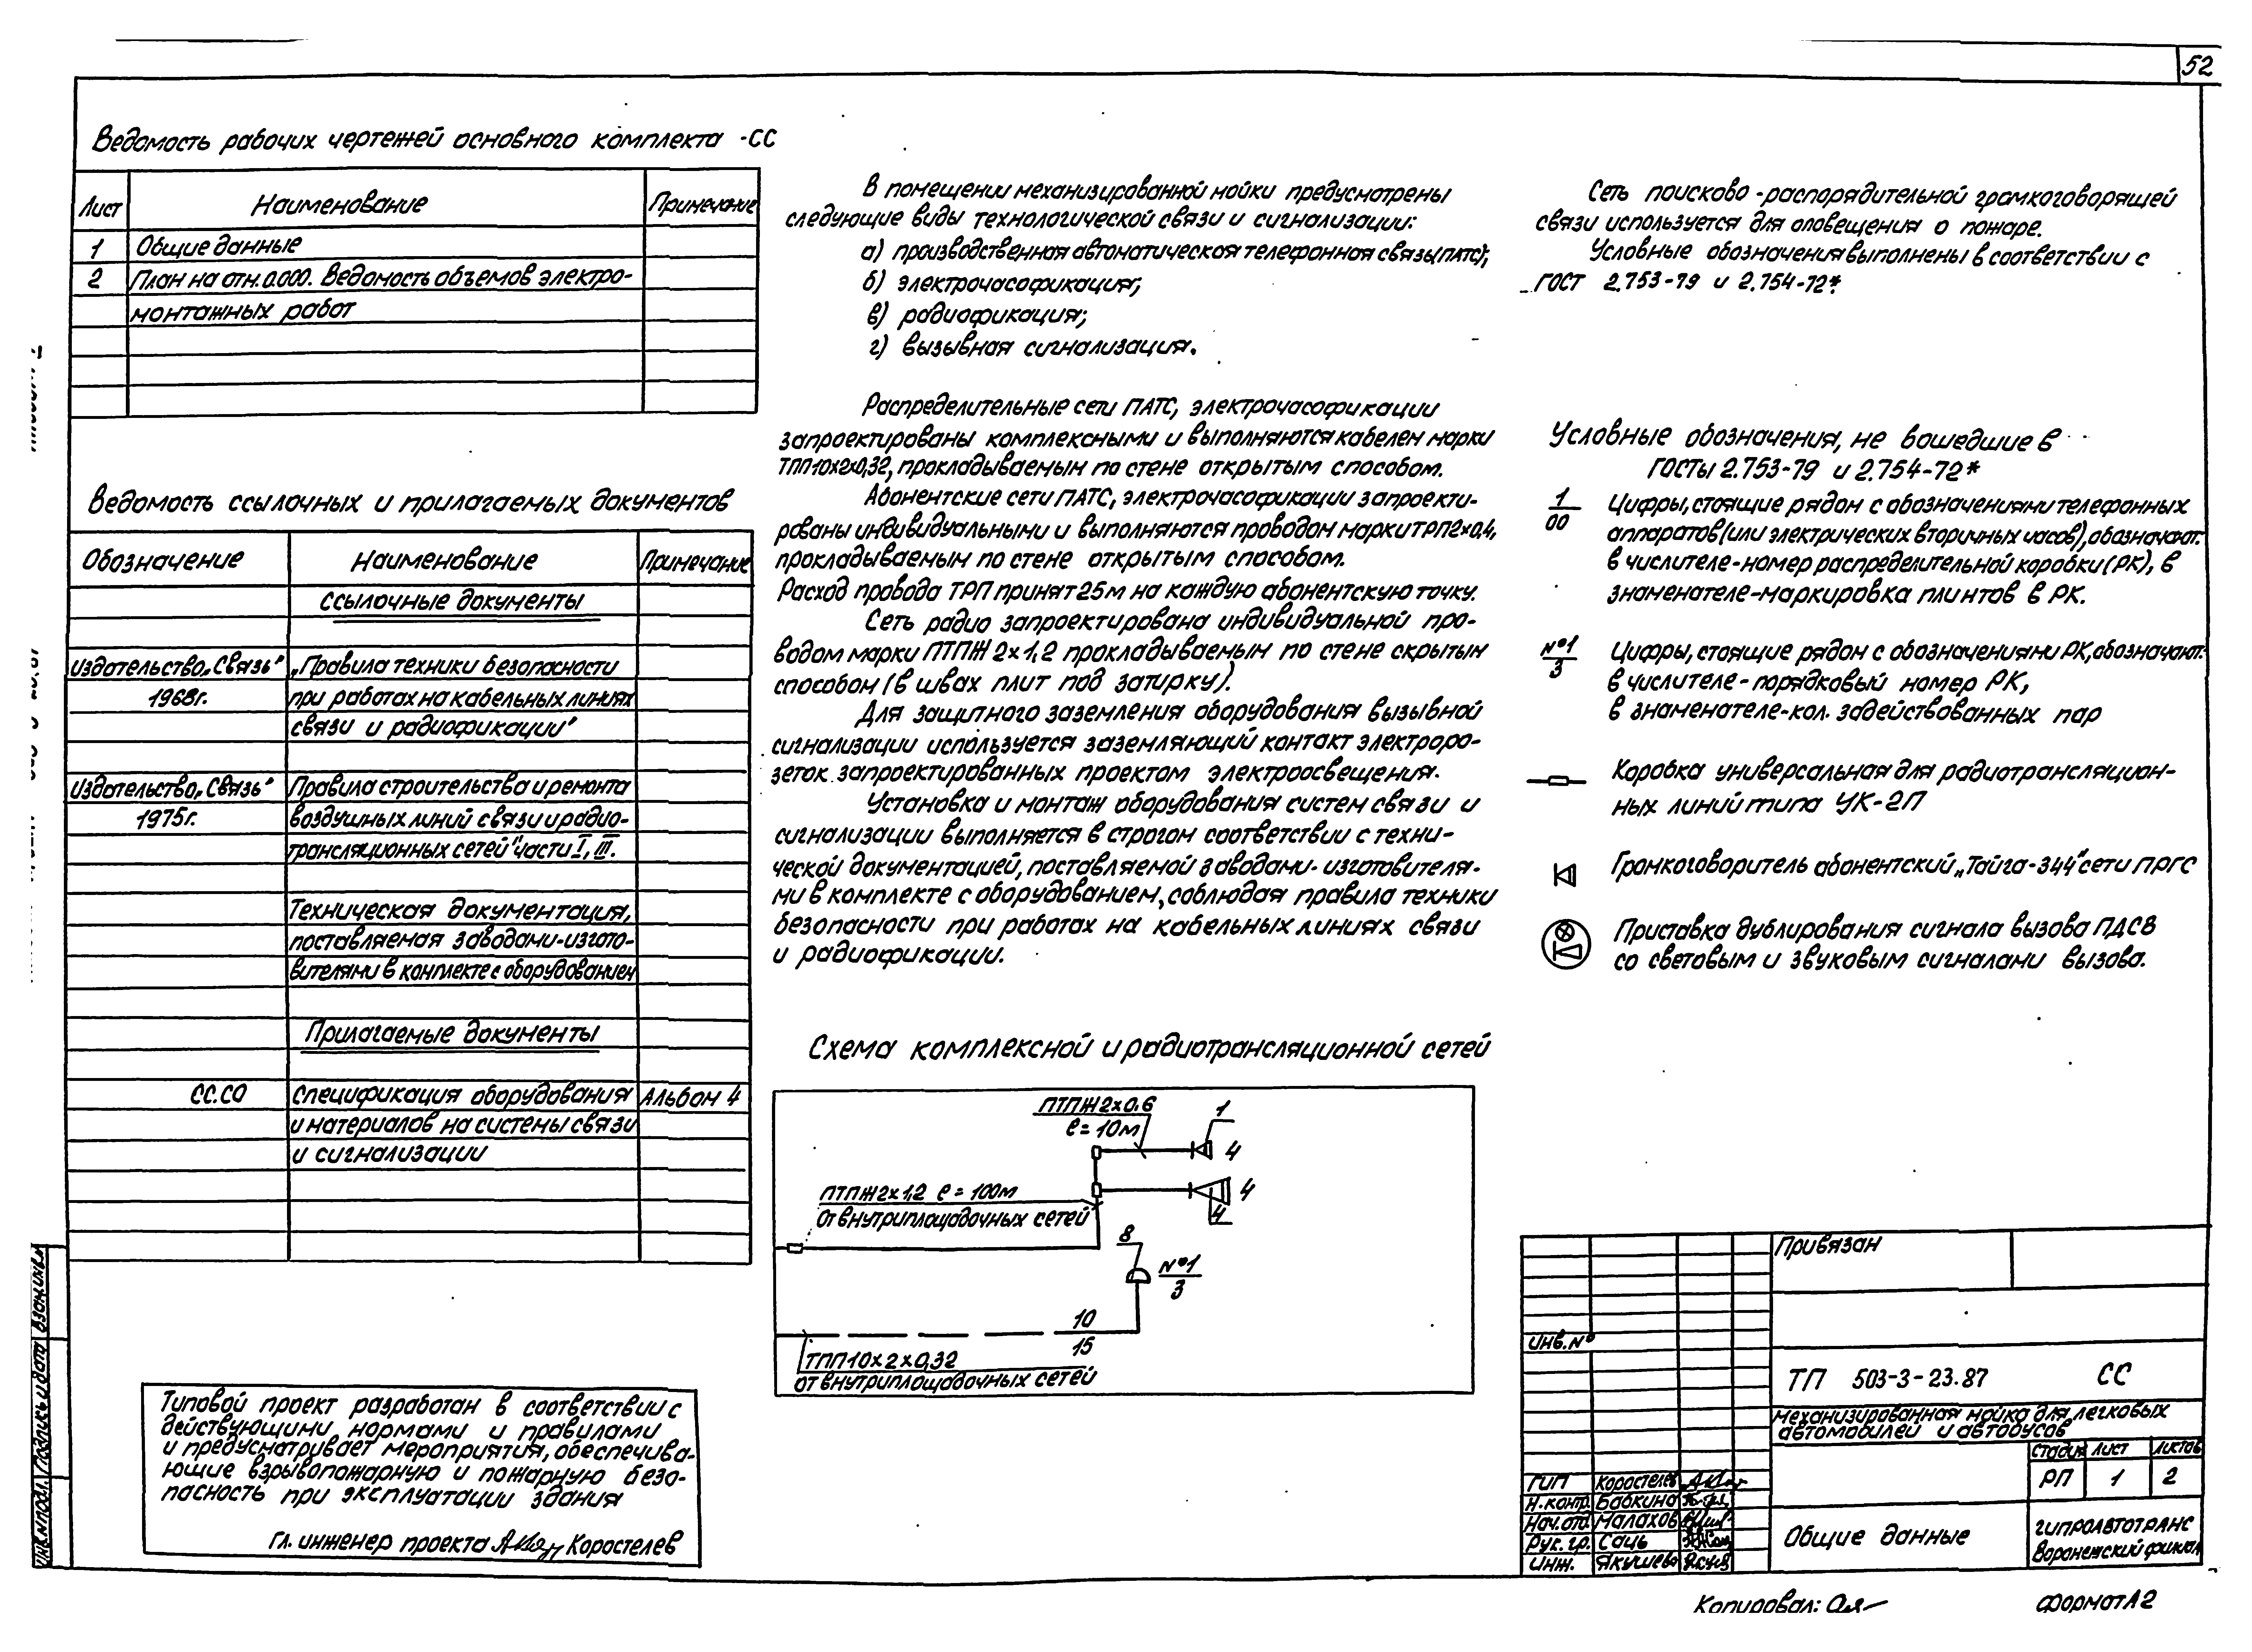 52
Ведомость рабочих чертежей основного комплекта -СС
Лист Наименование Примечание
1 Общие данные
2 План на отм.0.000. Ведомость объемов электро-
монтажных работ
Ведомость ссылочных и прилагаемых документов
Обозначение Наименование Примечание
Ссылочные документы
Издательство „Связь" „Правила техники безопасности
1968г. при работах на кабельных линиях
связи и радиофикации"
Издательство „Связь" Правила строительства и ремонта
1975г. воздушных линий связи и радио-
трансляционных сетей" части I, III.
Техническая документация,
поставляемая заводами-изгото-
вителями в комплекте с оборудованием
Прилагаемые документы
СС.СО Спецификация оборудования Альбом 4
и материалов на системы связи
и сигнализации
Типовой проект разработан в соответствии с
действующими нормами и правилами
и предусматривает мероприятия, обеспечива-
ющие взрывопожарную и пожарную безо-
пасность при эксплуатации здания
Гл. инженер проекта Коростелев
В помещении механизированной мойки предусмотрены
следующие виды технологической связи и сигнализации:
а) производственная автоматическая телефонная связь(ПАТС);
б) электрочасофикация;
в) радиофикация;
г) вызывная сигнализация.
Распределительные сети ПАТС, электрочасофикации
запроектированы комплексными и выполняются кабелем марки
ТПП10х2х0,32, прокладываемым по стене открытым способом.
Абонентские сети ПАТС, электрочасофикации запроекти-
рованы индивидуальными и выполняются проводом марки ТРП2х0,4,
прокладываемым по стене открытым способом.
Расход провода ТРП принят 25м на каждую абонентскую точку.
Сеть радио запроектирована индивидуальной про-
водом марки ПТПЖ 2х1,2 прокладываемым по стене скрытым
способом (в швах плит под затирку).
Для защитного заземления оборудования вызывной
сигнализации используется заземляющий контакт электроро-
зеток запроектированных проектом электроосвещения.
Установка и монтаж оборудования систем связи и
сигнализации выполняется в строгом соответствии с техни-
ческой документацией, поставляемой заводами-изготовителя-
ми в комплекте с оборудованием, соблюдая правила техники
безопасности при работах на кабельных линиях связи
и радиофикации.
Схема комплексной и радиотрансляционной сетей
ПТПЖ 2х0.6 1
ℓ=10м
4
ПТПЖ 2х1,2 ℓ=100м 4
От внутриплощадочных сетей 4
8
№1
3
10
15
ТПП10х2х0,32
от внутриплощадочных сетей
Сеть поисково-распорядительной громкоговорящей
связи используется для оповещения о пожаре.
Условные обозначения выполнены в соответствии с
ГОСТ 2.753-79 и 2.754-72*.
Условные обозначения, не вошедшие в
ГОСТы 2.753-79 и 2.754-72*
1
00
Цифры, стоящие рядом с обозначениями телефонных
аппаратов(или электрических вторичных часов), обозначают:
в числителе-номер распределительной коробки(РК), в
знаменателе-маркировка плинтов в РК.
№1
3
Цифры, стоящие рядом с обозначениями РК, обозначают:
в числителе-порядковый номер РК,
в знаменателе-кол. задействованных пар
Коробка универсальная для радиотрансляцион-
ных линий типа УК-2П
Громкоговоритель абонентский „Тайга-344" сети ПРГС
Приставка дублирования сигнала вызова ПДСВ
со световым и звуковым сигналами вызова.
Привязан
Инв.№
ТП 503-3-23.87 СС
Механизированная мойка для легковых
автомобилей и автобусов
Стадия Лист Листов
РП 1 2
ГИП Коростелев
Н.контр. Бабкина
Нач.отд. Малахов
Рук.гр. Сачь
Инж. Якушева
Общие данные
ГИПРОАВТОТРАНС
Воронежский филиал
Инв.№подл. Подпись и дата Взам.инв.№
Копировал:
Формат А2